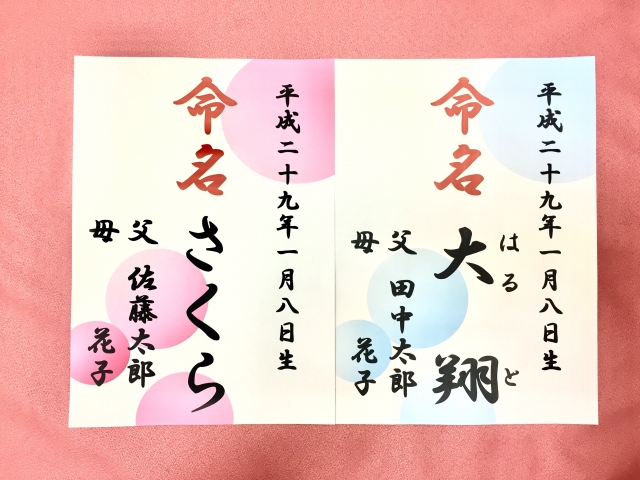 平成二十九年一月八日生
命名
大翔
はると
父 田中太郎
母 花子
平成二十九年一月八日生
命名
さくら
父 佐藤太郎
母 花子